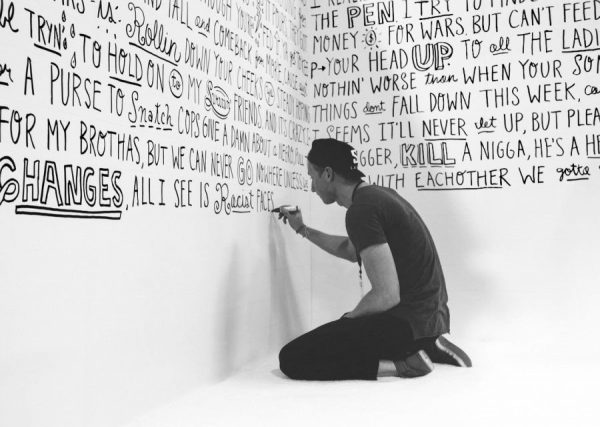 AND TALL and COMEBACK
Rollin DOWN YOUR CHEEKS
be TRYN' TO HOLD ON to MY FRIENDS, AND ITS CRAZY
A PURSE TO Snatch COPS GIVE A DAMN ABOUT A
FOR MY BROTHAS, BUT WE CAN NEVER GO NOWHERE UNLESS WE
CHANGES, ALL I SEE IS Racist FACES
THE PEN I TRY TO
MONEY FOR WARS, BUT CAN'T FEED
YOUR HEAD UP TO all THE LADI
NOTHIN' WORSE than WHEN YOUR SON
THINGS dont FALL DOWN THIS WEEK, ca
SEEMS IT'LL NEVER let UP, BUT PLEA
GGER, KILL A NIGGA, HE'S A HE
WITH EACHOTHER WE gotta